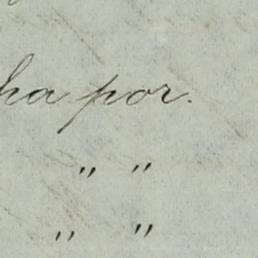 ha por.
" "
" "